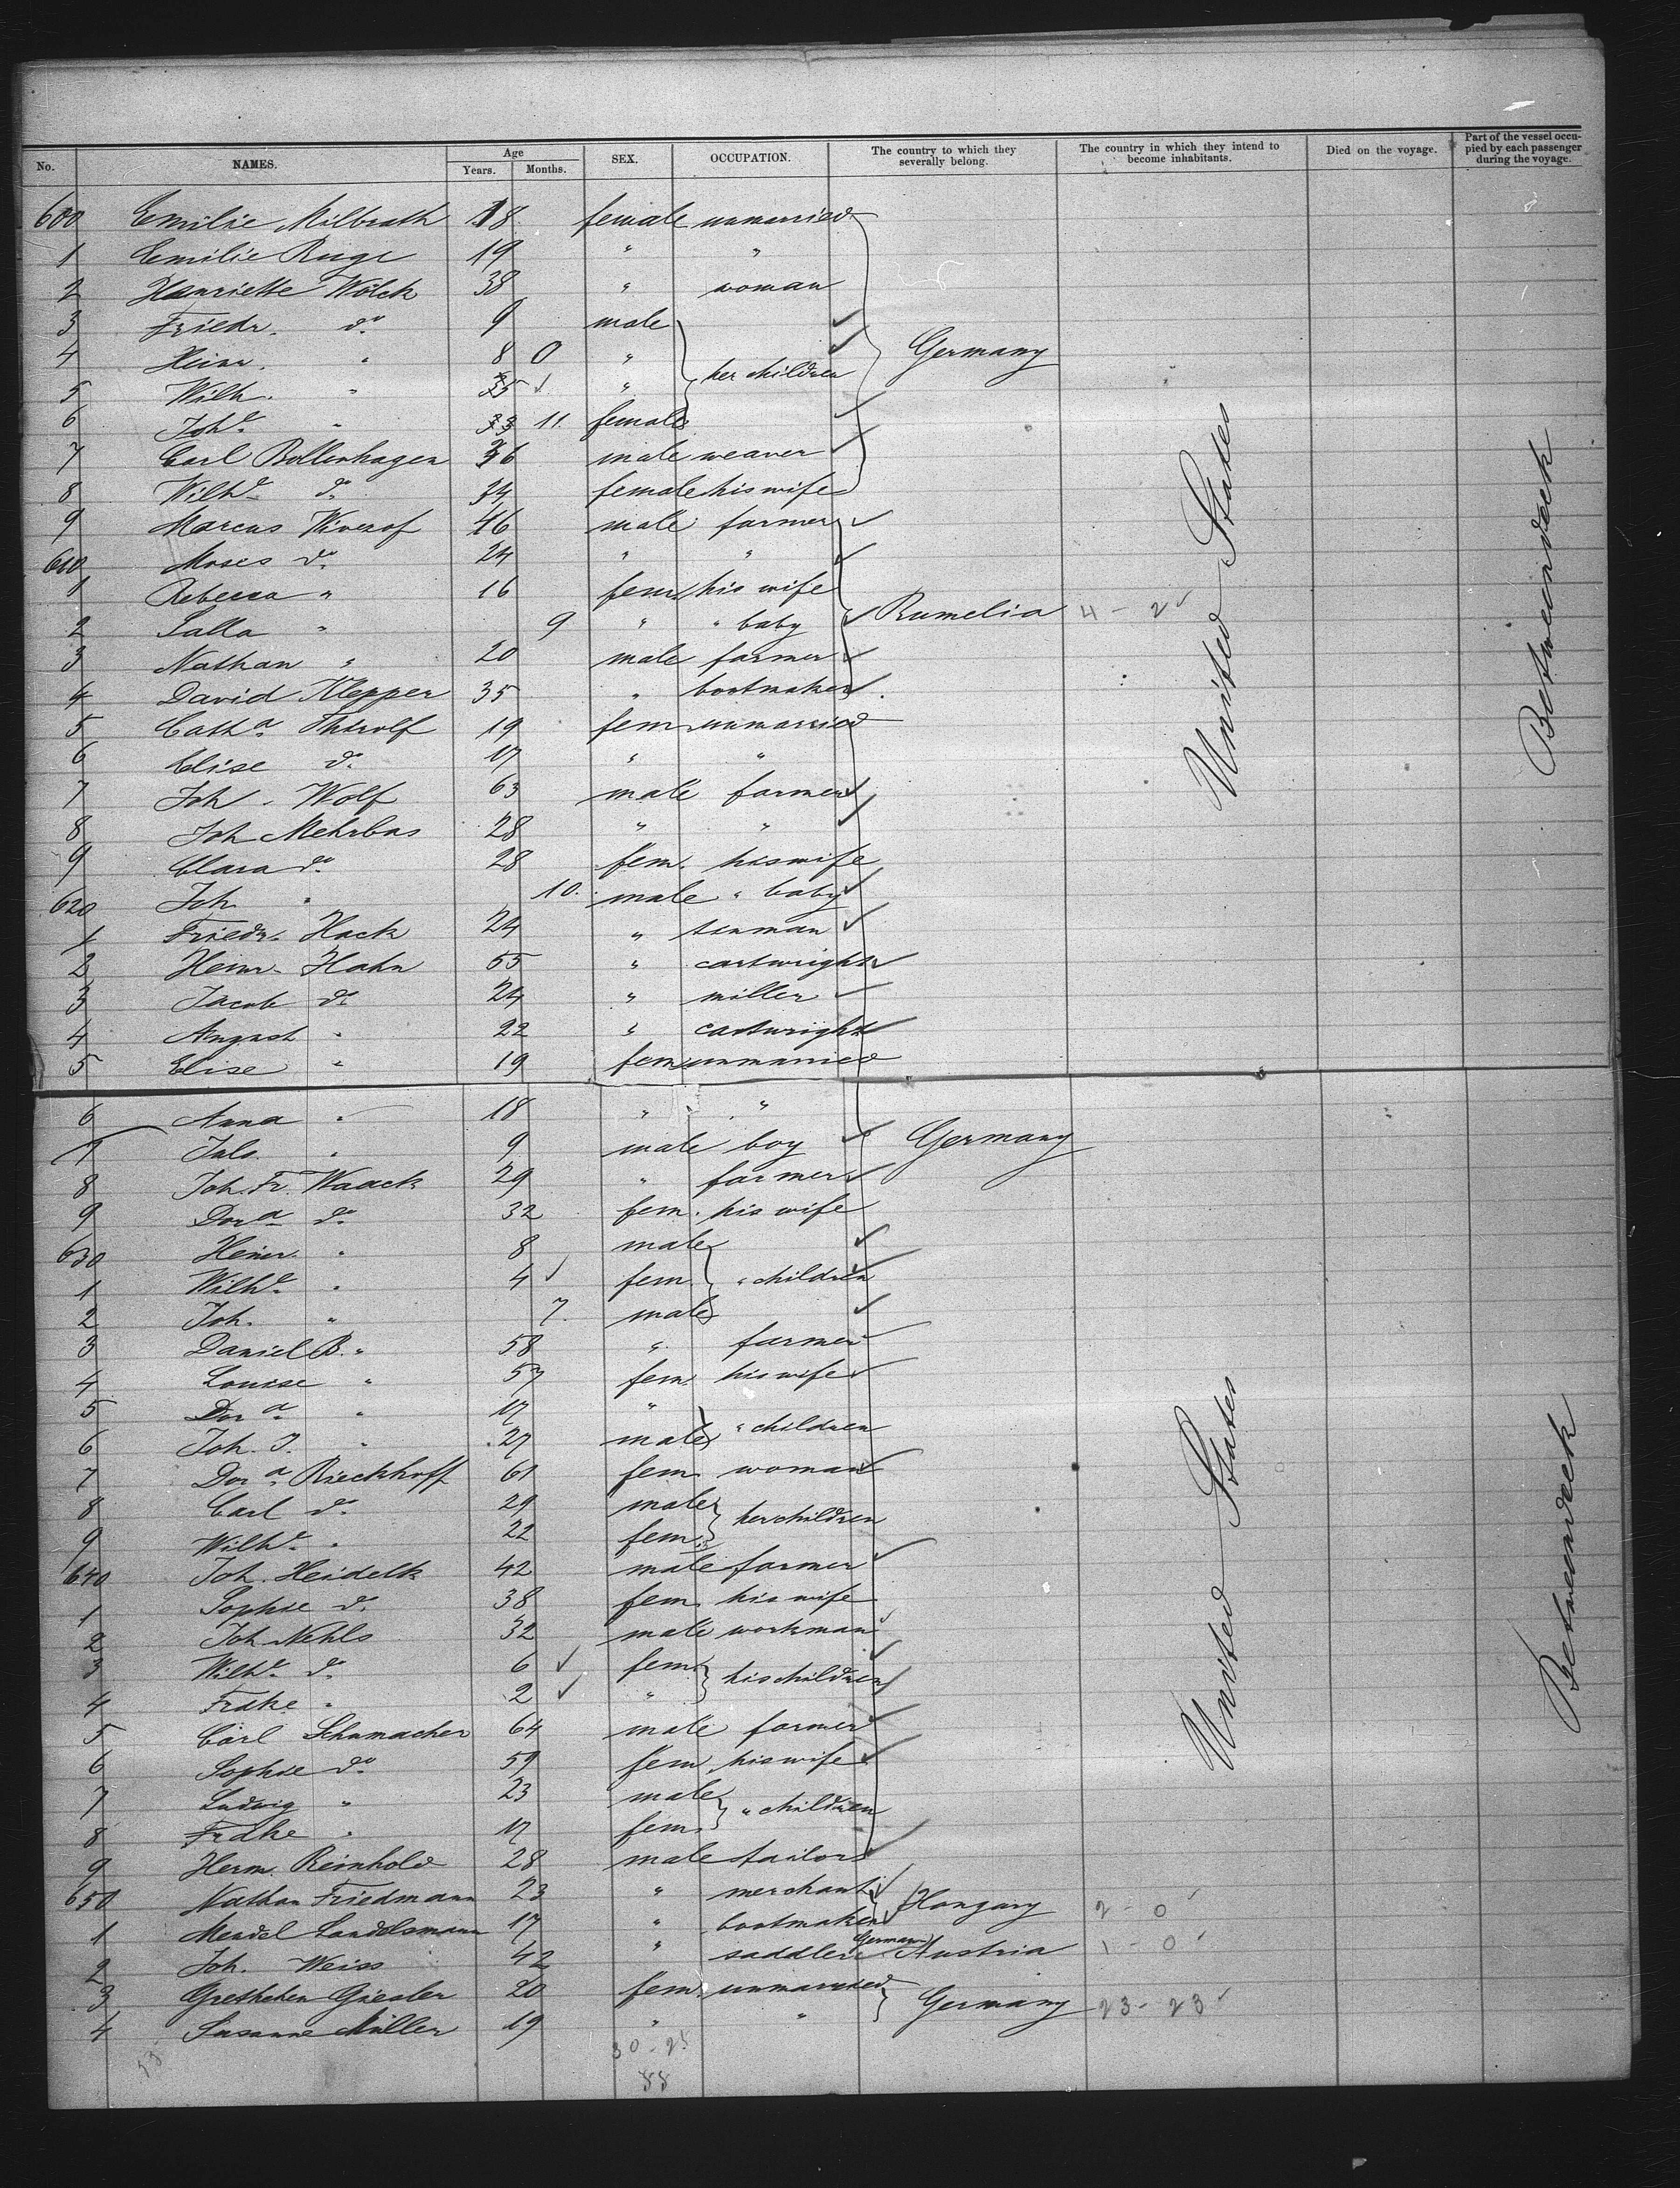 No. NAMES. Age Years. Months. SEX. OCCUPATION. The country to which they severally belong. The country in which they intend to become inhabitants. Died on the voyage. Part of the vessel occupied by each passenger during the voyage.
600 Emilie Milbrath 18 female unmarried
1 Emilie Ruge 19 " "
2 Henriette Wölck 38 " woman
3 Friedr. do 9 male
4 Heinr. " 8 0 " her children Germany
5 Wilh. " 5 "
6 Johe " 3 11. female
7 Carl Bollenhagen 36 male weaver
8 Wilhe do 34 female his wife
9 Marcus 46 male farmer
610 Moses do 24 " "
1 Rebecca " 16 fem. his wife
2 Salla " 9 " " baby Rumelia 4 - 2
3 Nathan " 20 male farmer
4 David Klepper 35 " bootmaker
5 Catha 19 fem unmarried
6 Elise do 17 " "
7 Joh. Wolf 63 male farmer
8 Joh Mehrbas 28 " "
9 Clara do 28 fem. his wife
620 Joh " 10. male " baby
1 Friedr. Hack 24 " tinman
2 Heinr. Hahn 55 " cartwright
3 Jacob do 24 " miller
4 August " 22 " cartwright
5 Elise " 19 fem unmarried
6 Anna " 18 " "
7 Juls. " 9 male boy Germany
8 Joh. Fr. Waack 29 " farmer
9 Dora do 32 fem. his wife
630 Heinr. " 8 male
1 Wilhe " 4 fem. " children
2 Joh. " 7. male
3 Daniel B. " 58 " farmer
4 Louise " 57 fem. his wife
5 Dora " 17 "
6 Joh. J. " 27 male " children
7 Dora Rieckhoff 61 fem woman
8 Carl do 29 male her children
9 Wilhe " 22 fem.
640 Joh. Heidelk 42 male farmer
1 Sophie do 38 fem his wife
2 Joh Nehls 32 male workman
3 Wilhe do 6 fem his children
4 Frdke " 2 "
5 Carl Schumacher 64 male farmer
6 Sophie do 59 fem. his wife
7 Ludwig " 23 male " children
8 Frdke " 17 fem.
9 Herm. Reinhold 28 male tailor
650 Nathan Friedmann 23 " merchant Hongary 2 - 0
1 Mendel Landesmann 17 " bootmaker
2 Joh. Weiss 42 " saddler German Austria 1 - 0
3 Grethchen Giesler 20 fem. unmarried Germany 23 - 23
4 Susanne Müller 19 " "
30 - 25
United States
Betweindeck
United States
Betweendeck